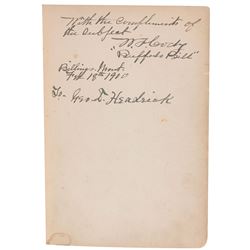 With the compliments of
the subject
W. F. Cody
"Buffalo Bill"
Billings, Mont.
Feb 18th 1910
To- Geo. T. Headrick